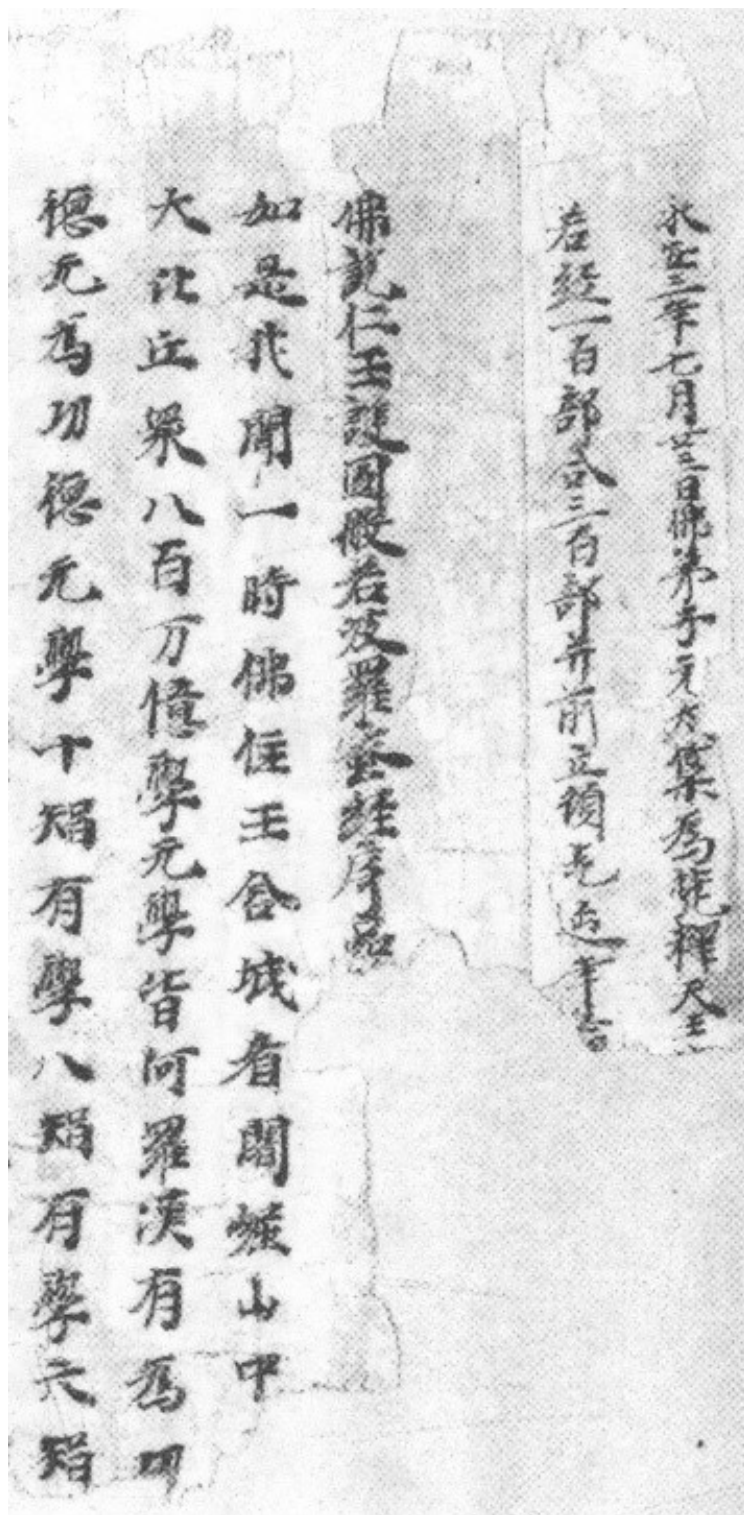 永安三年七月廿三日佛弟子元太榮爲梵釋天王
若經一百部合三百部并前立願乞延年
佛說仁王護國般若波羅蜜經序品
如是我聞一時佛住王舍城耆闍崛山中
大比丘衆八百万億學无學皆阿羅漢有爲功
德无爲功德无學十智有學八智有學六智